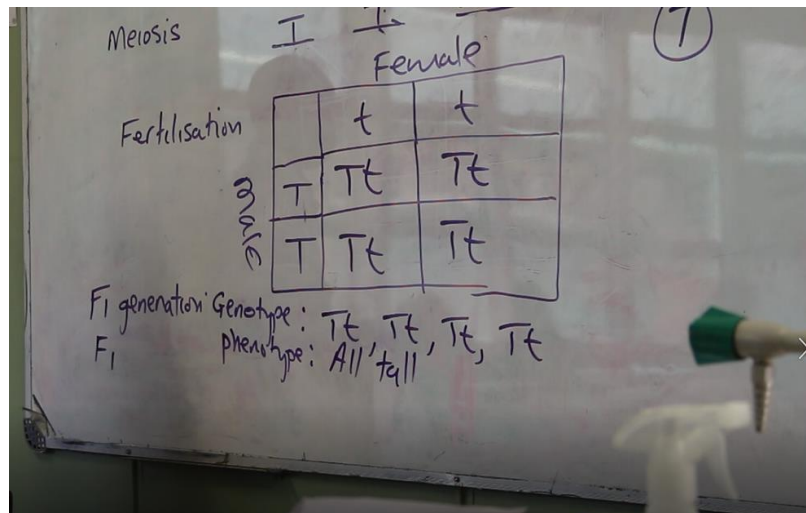 Meiosis
7
Female
Fertilisation
t t
Male
T Tt Tt
T Tt Tt
F1 generation Genotype: Tt, Tt, Tt, Tt
F1 phenotype: All tall